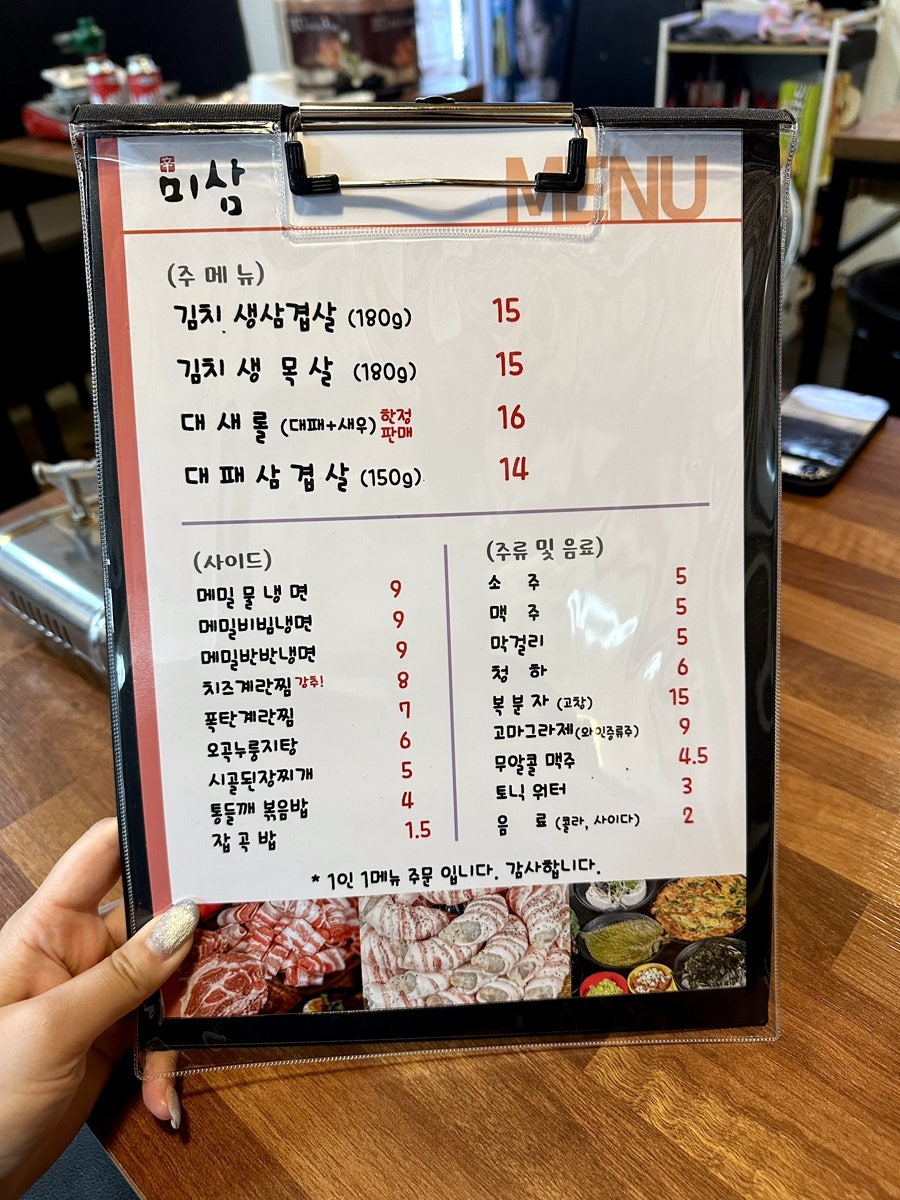 辛
미삼
MENU
(주 메 뉴)
김치 생삼겹살 (180g) 15
김치 생 목 살 (180g) 15
대 새 롤 (대패+새우) 한정 판매 16
대 패 삼 겹 살 (150g) 14
(사이드)
메밀 물 냉 면 9
메밀비빔냉면 9
메밀반반냉면 9
치즈계란찜 강추! 8
폭탄계란찜 7
오곡누룽지탕 6
시골된장찌개 5
통들깨 볶음밥 4
잡 곡 밥 1.5
(주류 및 음료)
소 주 5
맥 주 5
막걸리 5
청 하 6
복 분 자 (고창) 15
고마그라제(와인증류주) 9
무알콜 맥주 4.5
토닉 워터 3
음 료 (콜라, 사이다) 2
* 1인 1메뉴 주문 입니다. 감사합니다.